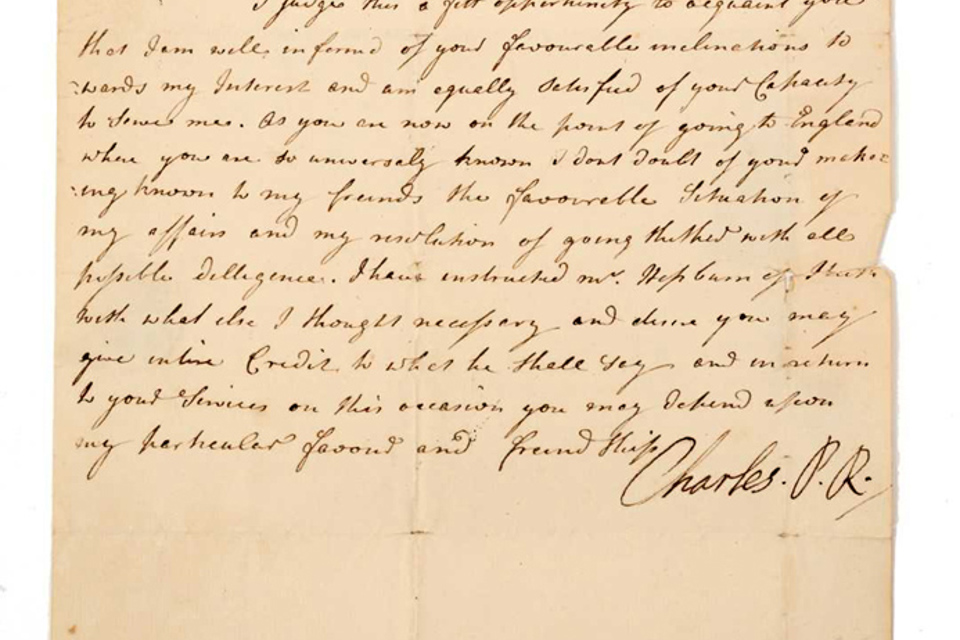 I judge this a fitt opportunity to acquaint you
that I am well informd of your favourable inclinations to
:wards my Interest and am equally Satisfied of your Capacity
to Serve me. As you are now on the point of going to England
where you are so universaly known I dont doubt of your make=
:ing known to my freinds the favourable Situation of
my affairs and my resolution of going thither with all
possible dilligence. I have instructed mr. Hepburn of Keith
with what else I thought necessary and desire you may
give intire Credit to what he shall say and in return
to your Services on this occasion you may depend upon
my particular favour and freind ship
Charles. P. R.